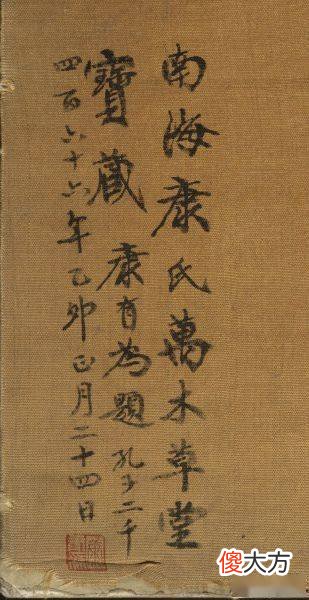 南海康氏萬木草堂
寶藏康有為題孔子二千
四百六十六年乙卯正月二十四日
傻大方